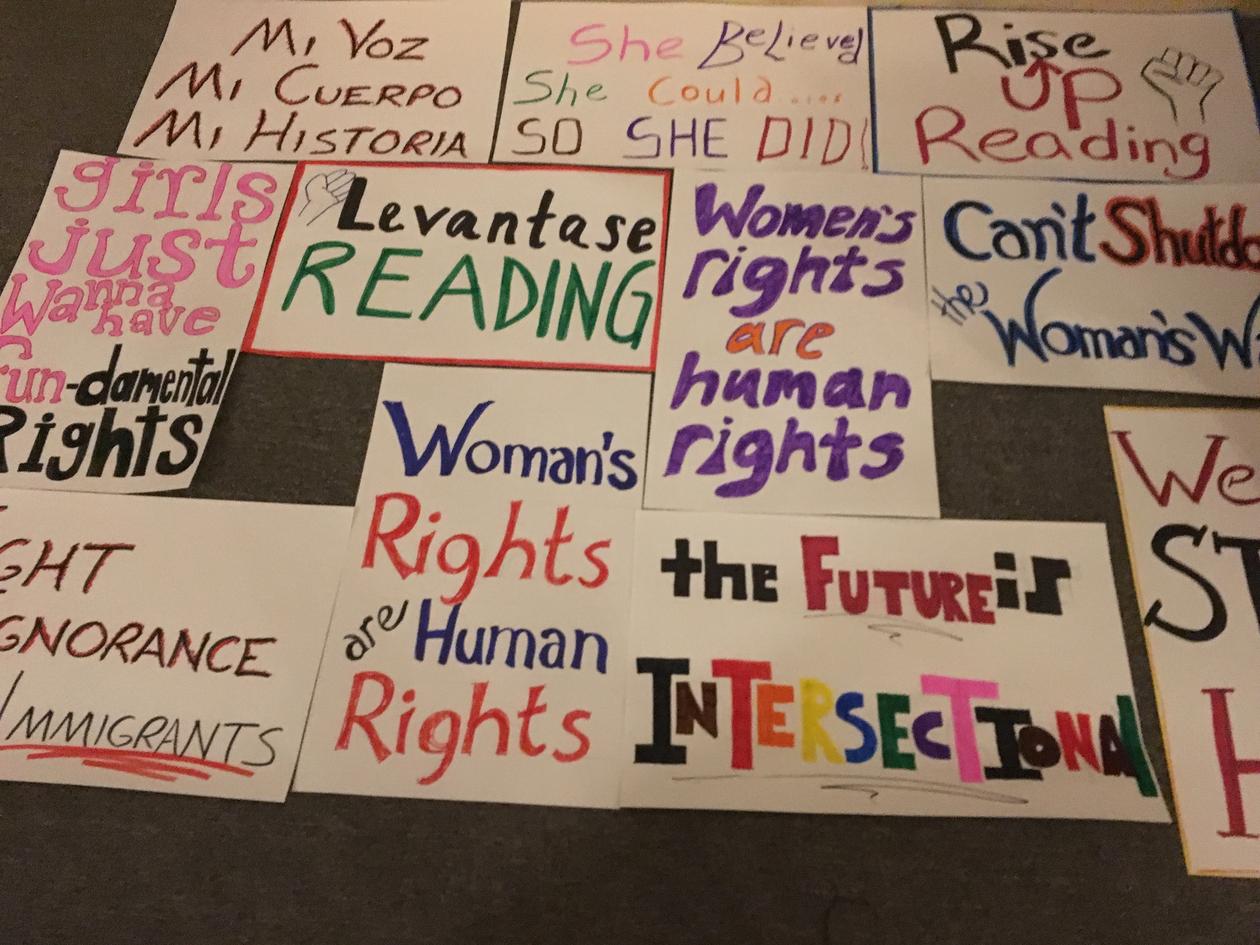 Mi Voz
Mi Cuerpo
Mi Historia
She Believed
She Could....
SO SHE DID!
Rise
Up
Reading
girls
just
Wanna
have
fun-damental
Rights
Levantase
READING
Women's
rights
are
human
rights
Can't Shutdo
the Woman's W
GHT
GNORANCE
IMMIGRANTS
Woman's
Rights
are Human
Rights
the FUTURE is
INTERSECTIONAL
We
ST
H